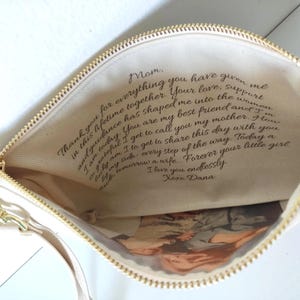 Mom,
Thank you for everything you have given me
in this lifetime together. Your love, support
and guidance has shaped me into the woman
I am today. You are my best friend and I'm
grateful I get to call you my mother. I
I get to share this day with you
by my side every step of the way. Today a
tomorrow a wife. Forever your little girl
I love you endlessly
Xoxo Dana